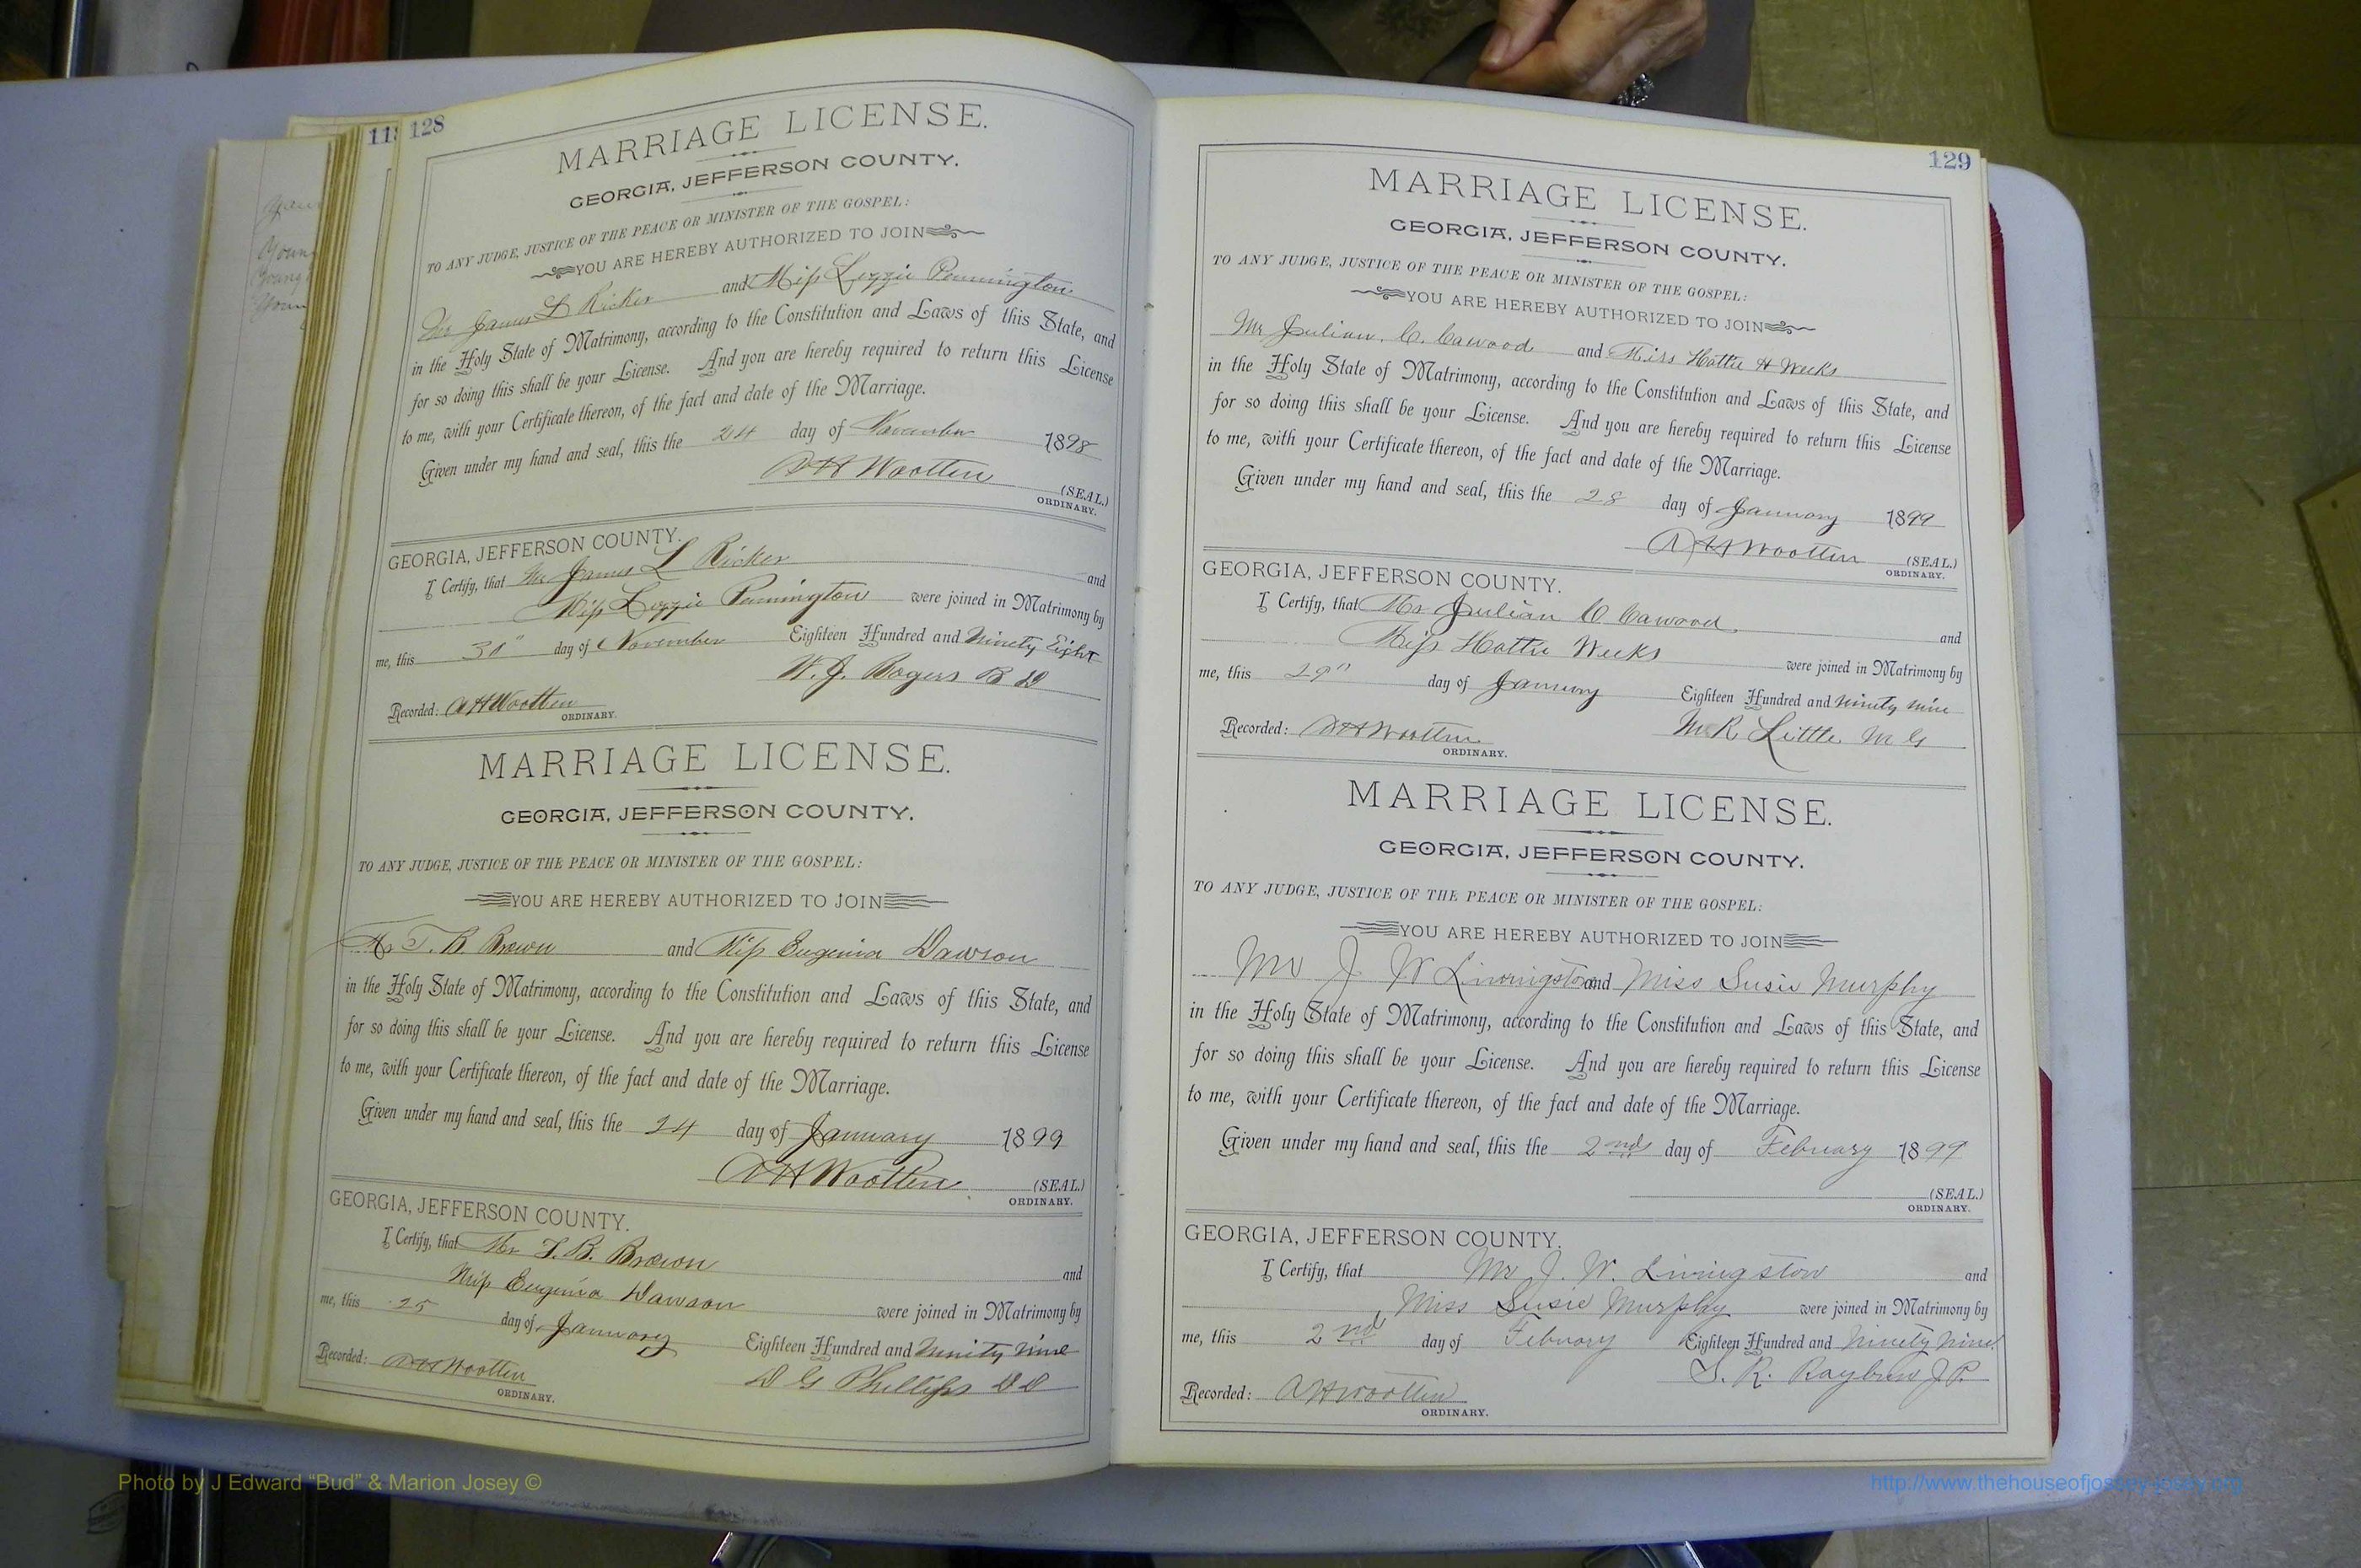 128
MARRIAGE LICENSE.
GEORGIA, JEFFERSON COUNTY.
TO ANY JUDGE, JUSTICE OF THE PEACE OR MINISTER OF THE GOSPEL:
YOU ARE HEREBY AUTHORIZED TO JOIN
Mr James L Ricker and Miss Lizzie Pennington
in the Holy State of Matrimony, according to the Constitution and Laws of this State, and
for so doing this shall be your License. And you are hereby required to return this License
to me, with your Certificate thereon, of the fact and date of the Marriage.
Given under my hand and seal, this the 24 day of November 1898
AH Wootten (SEAL.)
ORDINARY.
GEORGIA, JEFFERSON COUNTY.
I Certify, that Mr James L Ricker and
Miss Lizzie Pennington were joined in Matrimony by
me, this 30" day of November Eighteen Hundred and Ninety Eight
W. J. Rogers
Recorded: AH Wootten
ORDINARY.
MARRIAGE LICENSE.
GEORGIA, JEFFERSON COUNTY.
TO ANY JUDGE, JUSTICE OF THE PEACE OR MINISTER OF THE GOSPEL:
YOU ARE HEREBY AUTHORIZED TO JOIN
Mr T. B. Brown and Miss Eugenia Dawson
in the Holy State of Matrimony, according to the Constitution and Laws of this State, and
for so doing this shall be your License. And you are hereby required to return this License
to me, with your Certificate thereon, of the fact and date of the Marriage.
Given under my hand and seal, this the 24 day of January 1899
AH Wootten (SEAL.)
ORDINARY.
GEORGIA, JEFFERSON COUNTY.
I Certify, that Mr T. B. Brown and
Miss Eugenia Dawson were joined in Matrimony by
me, this 25 day of January Eighteen Hundred and Ninety Nine
D G Phillips D D
Recorded: AH Wootten
ORDINARY.
129
MARRIAGE LICENSE.
GEORGIA, JEFFERSON COUNTY.
TO ANY JUDGE, JUSTICE OF THE PEACE OR MINISTER OF THE GOSPEL:
YOU ARE HEREBY AUTHORIZED TO JOIN
Mr Julian. C. Cawood and Miss Hattie H Weeks
in the Holy State of Matrimony, according to the Constitution and Laws of this State, and
for so doing this shall be your License. And you are hereby required to return this License
to me, with your Certificate thereon, of the fact and date of the Marriage.
Given under my hand and seal, this the 28 day of January 1899
AH Wootten (SEAL.)
ORDINARY.
GEORGIA, JEFFERSON COUNTY.
I Certify, that Mr Julian C Cawood and
Miss Hattie Weeks were joined in Matrimony by
me, this 29" day of January Eighteen Hundred and ninety nine
M R Little M G
Recorded: AH Wootten
ORDINARY.
MARRIAGE LICENSE.
GEORGIA, JEFFERSON COUNTY.
TO ANY JUDGE, JUSTICE OF THE PEACE OR MINISTER OF THE GOSPEL:
YOU ARE HEREBY AUTHORIZED TO JOIN
Mr J W Livingston and Miss Susie Murphy
in the Holy State of Matrimony, according to the Constitution and Laws of this State, and
for so doing this shall be your License. And you are hereby required to return this License
to me, with your Certificate thereon, of the fact and date of the Marriage.
Given under my hand and seal, this the 2nd day of February 1899
(SEAL.)
ORDINARY.
GEORGIA, JEFFERSON COUNTY.
I Certify, that Mr J. W. Livingston and
Miss Susie Murphy were joined in Matrimony by
me, this 2nd day of Febuary Eighteen Hundred and Ninety Nine
S. R. J. P.
Recorded: AH Wootten
ORDINARY.
Photo by J Edward “Bud” & Marion Josey ©